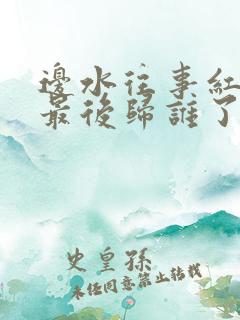 邊水往事紅
最後歸誰了
史皇孫
未经同意禁止转载